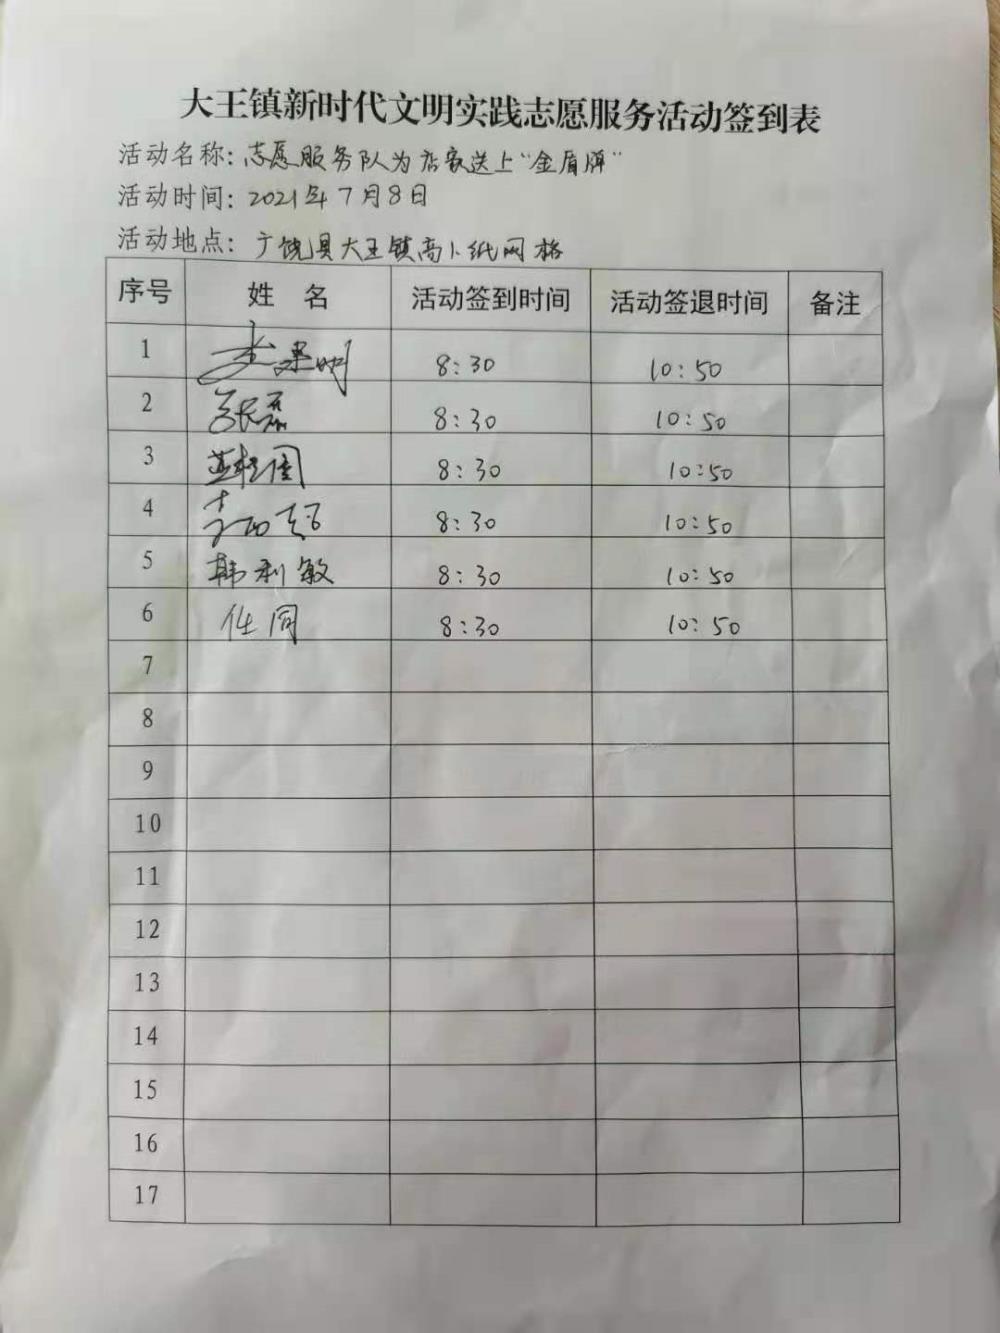 大王镇新时代文明实践志愿服务活动签到表
活动名称：志愿服务队为店家送上“金盾牌”
活动时间：2021年7月8日
活动地点：广饶县大王镇高卜纸网格
序号 姓 名 活动签到时间 活动签退时间 备注
1 8:30 10:50
2 张磊 8:30 10:50
3 8:30 10:50
4 8:30 10:50
5 韩利敏 8:30 10:50
6 任同 8:30 10:50
7
8
9
10
11
12
13
14
15
16
17